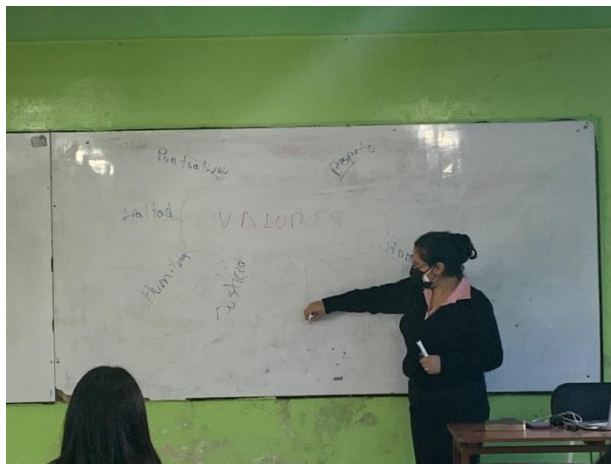 Puntualidad
Respeto
Lealtad
VALORES
Humildad
Justicia